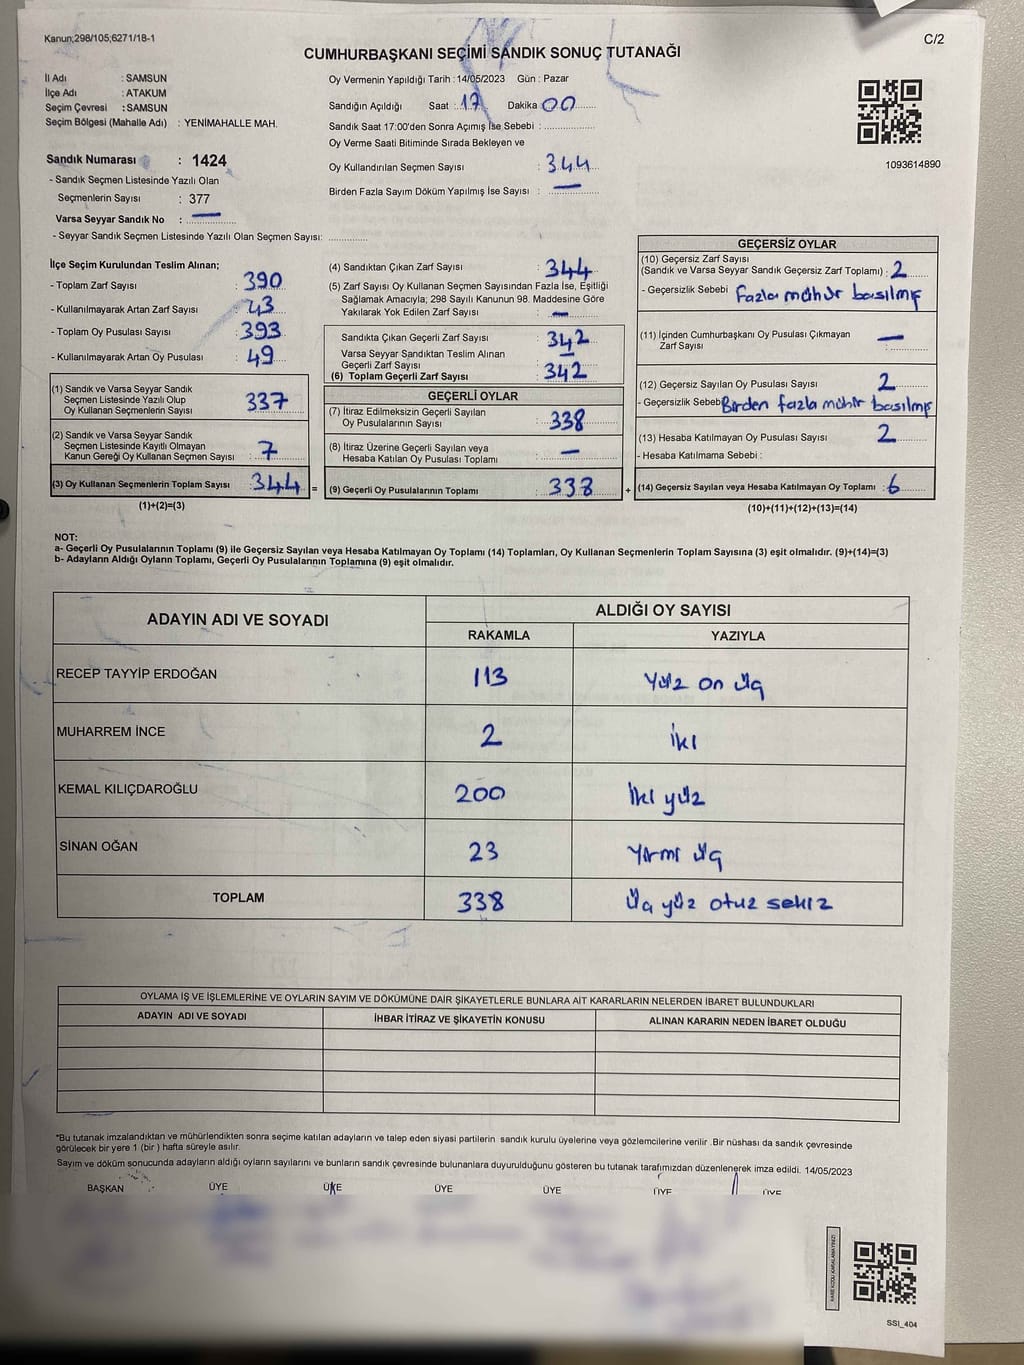 Kanun;298/105;6271/18-1
C/2
CUMHURBAŞKANI SEÇİMİ SANDIK SONUÇ TUTANAĞI
İl Adı : SAMSUN
İlçe Adı : ATAKUM
Seçim Çevresi : SAMSUN
Seçim Bölgesi (Mahalle Adı) : YENİMAHALLE MAH.
Oy Vermenin Yapıldığı Tarih : 14/05/2023 Gün : Pazar
Sandığın Açıldığı Saat : 17 Dakika 00
Sandık Saat 17:00'den Sonra Açımış İse Sebebi :
Oy Verme Saati Bitiminde Sırada Bekleyen ve
Oy Kullandırılan Seçmen Sayısı : 344
Birden Fazla Sayım Döküm Yapılmış İse Sayısı : —
1093614890
Sandık Numarası : 1424
- Sandık Seçmen Listesinde Yazılı Olan
Seçmenlerin Sayısı : 377
Varsa Seyyar Sandık No : —
- Seyyar Sandık Seçmen Listesinde Yazılı Olan Seçmen Sayısı:
İlçe Seçim Kurulundan Teslim Alınan;
- Toplam Zarf Sayısı : 390
- Kullanılmayarak Artan Zarf Sayısı : 43
- Toplam Oy Pusulası Sayısı : 393
- Kullanılmayarak Artan Oy Pusulası : 49
(1) Sandık ve Varsa Seyyar Sandık
Seçmen Listesinde Yazılı Olup
Oy Kullanan Seçmenlerin Sayısı : 337
(2) Sandık ve Varsa Seyyar Sandık
Seçmen Listesinde Kayıtlı Olmayan
Kanun Gereği Oy Kullanan Seçmen Sayısı : 7
(3) Oy Kullanan Seçmenlerin Toplam Sayısı : 344 =
(1)+(2)=(3)
(4) Sandıktan Çıkan Zarf Sayısı : 344
(5) Zarf Sayısı Oy Kullanan Seçmen Sayısından Fazla İse, Eşitliği
Sağlamak Amacıyla; 298 Sayılı Kanunun 98. Maddesine Göre
Yakılarak Yok Edilen Zarf Sayısı : —
Sandıkta Çıkan Geçerli Zarf Sayısı : 342
Varsa Seyyar Sandıktan Teslim Alınan
Geçerli Zarf Sayısı : —
(6) Toplam Geçerli Zarf Sayısı : 342
GEÇERLİ OYLAR
(7) İtiraz Edilmeksizin Geçerli Sayılan
Oy Pusulalarının Sayısı : 338
(8) İtiraz Üzerine Geçerli Sayılan veya
Hesaba Katılan Oy Pusulası Toplamı : —
(9) Geçerli Oy Pusulalarının Toplamı : 338 +
GEÇERSİZ OYLAR
(10) Geçersiz Zarf Sayısı
(Sandık ve Varsa Seyyar Sandık Geçersiz Zarf Toplamı) : 2
- Geçersizlik Sebebi : Fazla mühür basılmış
(11) İçinden Cumhurbaşkanı Oy Pusulası Çıkmayan
Zarf Sayısı : —
(12) Geçersiz Sayılan Oy Pusulası Sayısı : 2
- Geçersizlik Sebebi Birden fazla mühür basılmış
(13) Hesaba Katılmayan Oy Pusulası Sayısı : 2
- Hesaba Katılmama Sebebi :
(14) Geçersiz Sayılan veya Hesaba Katılmayan Oy Toplamı : 6
(10)+(11)+(12)+(13)=(14)
NOT:
a- Geçerli Oy Pusulalarının Toplamı (9) ile Geçersiz Sayılan veya Hesaba Katılmayan Oy Toplamı (14) Toplamları, Oy Kullanan Seçmenlerin Toplam Sayısına (3) eşit olmalıdır. (9)+(14)=(3)
b- Adayların Aldığı Oyların Toplamı, Geçerli Oy Pusulalarının Toplamına (9) eşit olmalıdır.
ADAYIN ADI VE SOYADI ALDIĞI OY SAYISI
RAKAMLA YAZIYLA
RECEP TAYYİP ERDOĞAN 113 Yüz on üç
MUHARREM İNCE 2 iki
KEMAL KILIÇDAROĞLU 200 iki yüz
SİNAN OĞAN 23 Yirmi üç
TOPLAM 338 üç yüz otuz sekiz
OYLAMA İŞ VE İŞLEMLERİNE VE OYLARIN SAYIM VE DÖKÜMÜNE DAİR ŞİKAYETLERLE BUNLARA AİT KARARLARIN NELERDEN İBARET BULUNDUKLARI
ADAYIN ADI VE SOYADI İHBAR İTİRAZ VE ŞİKAYETİN KONUSU ALINAN KARARIN NEDEN İBARET OLDUĞU
*Bu tutanak imzalandıktan ve mühürlendikten sonra seçime katılan adayların ve talep eden siyasi partilerin sandık kurulu üyelerine veya gözlemcilerine verilir .Bir nüshası da sandık çevresinde
görülecek bir yere 1 (bir ) hafta süreyle asılır.
Sayım ve döküm sonucunda adayların aldığı oyların sayılarını ve bunların sandık çevresinde bulunanlara duyurulduğunu gösteren bu tutanak tarafımızdan düzenlenerek imza edildi. 14/05/2023
BAŞKAN ÜYE ÜYE ÜYE ÜYE ÜYE ÜYE
SSI_404